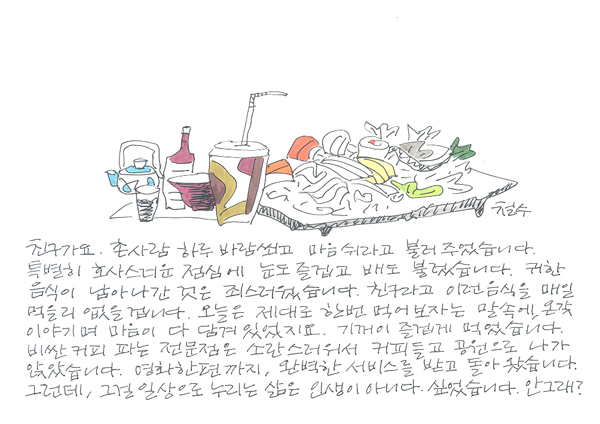 철수
친구가요. 촌사람 하루 바람쐬고 마음 쉬라고 불러 주었습니다.
특별히 호사스러운 점심에 눈도 즐겁고 배도 불렀습니다. 귀한
음식이 남아나간 것은 죄스러웠습니다. 친구라고 이런 음식을 매일
먹을리 없을겝니다. 오늘은 제대로 한번 먹어보자는 말속에, 온갖
이야기며 마음이 다 담겨 있었지요. 기꺼이 즐겁게 먹었습니다.
비싼 커피 파는 전문점은 소란스러워서 커피들고 공원으로 나가
앉았습니다. 영화한편까지, 완벽한 서비스를 받고 돌아 왔습니다.
그런데, 그걸 일상으로 누리는 삶은 인생이 아니다. 싶었습니다. 안그래?